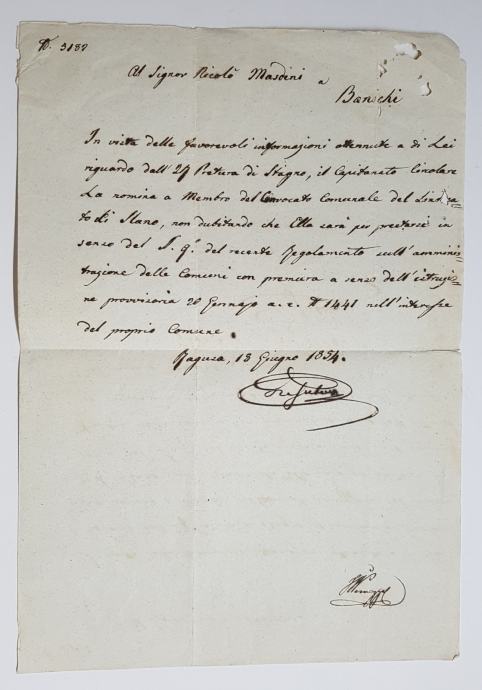 N. 3182
Al Signor Nicolò Masdini a
Banichi
In vista delle favorevoli informazioni ottenute a di Lei
riguardo dall' Pretura di Stagno, il Capitanato Circolare
La nomina a Membro del Convocato Comunale del Sindica=
to di Slano, non dubitando che Ella sarà per prestarsi in
senso del §. 9. del recente Regolamento sull' ammini=
strazione delle Comuni con premura a senso dell' istruzio=
ne provvisoria 20 Gennajo a. c. N 1441 nell' interesse
del proprio Comune.
Ragusa, 13 Giugno 1854.